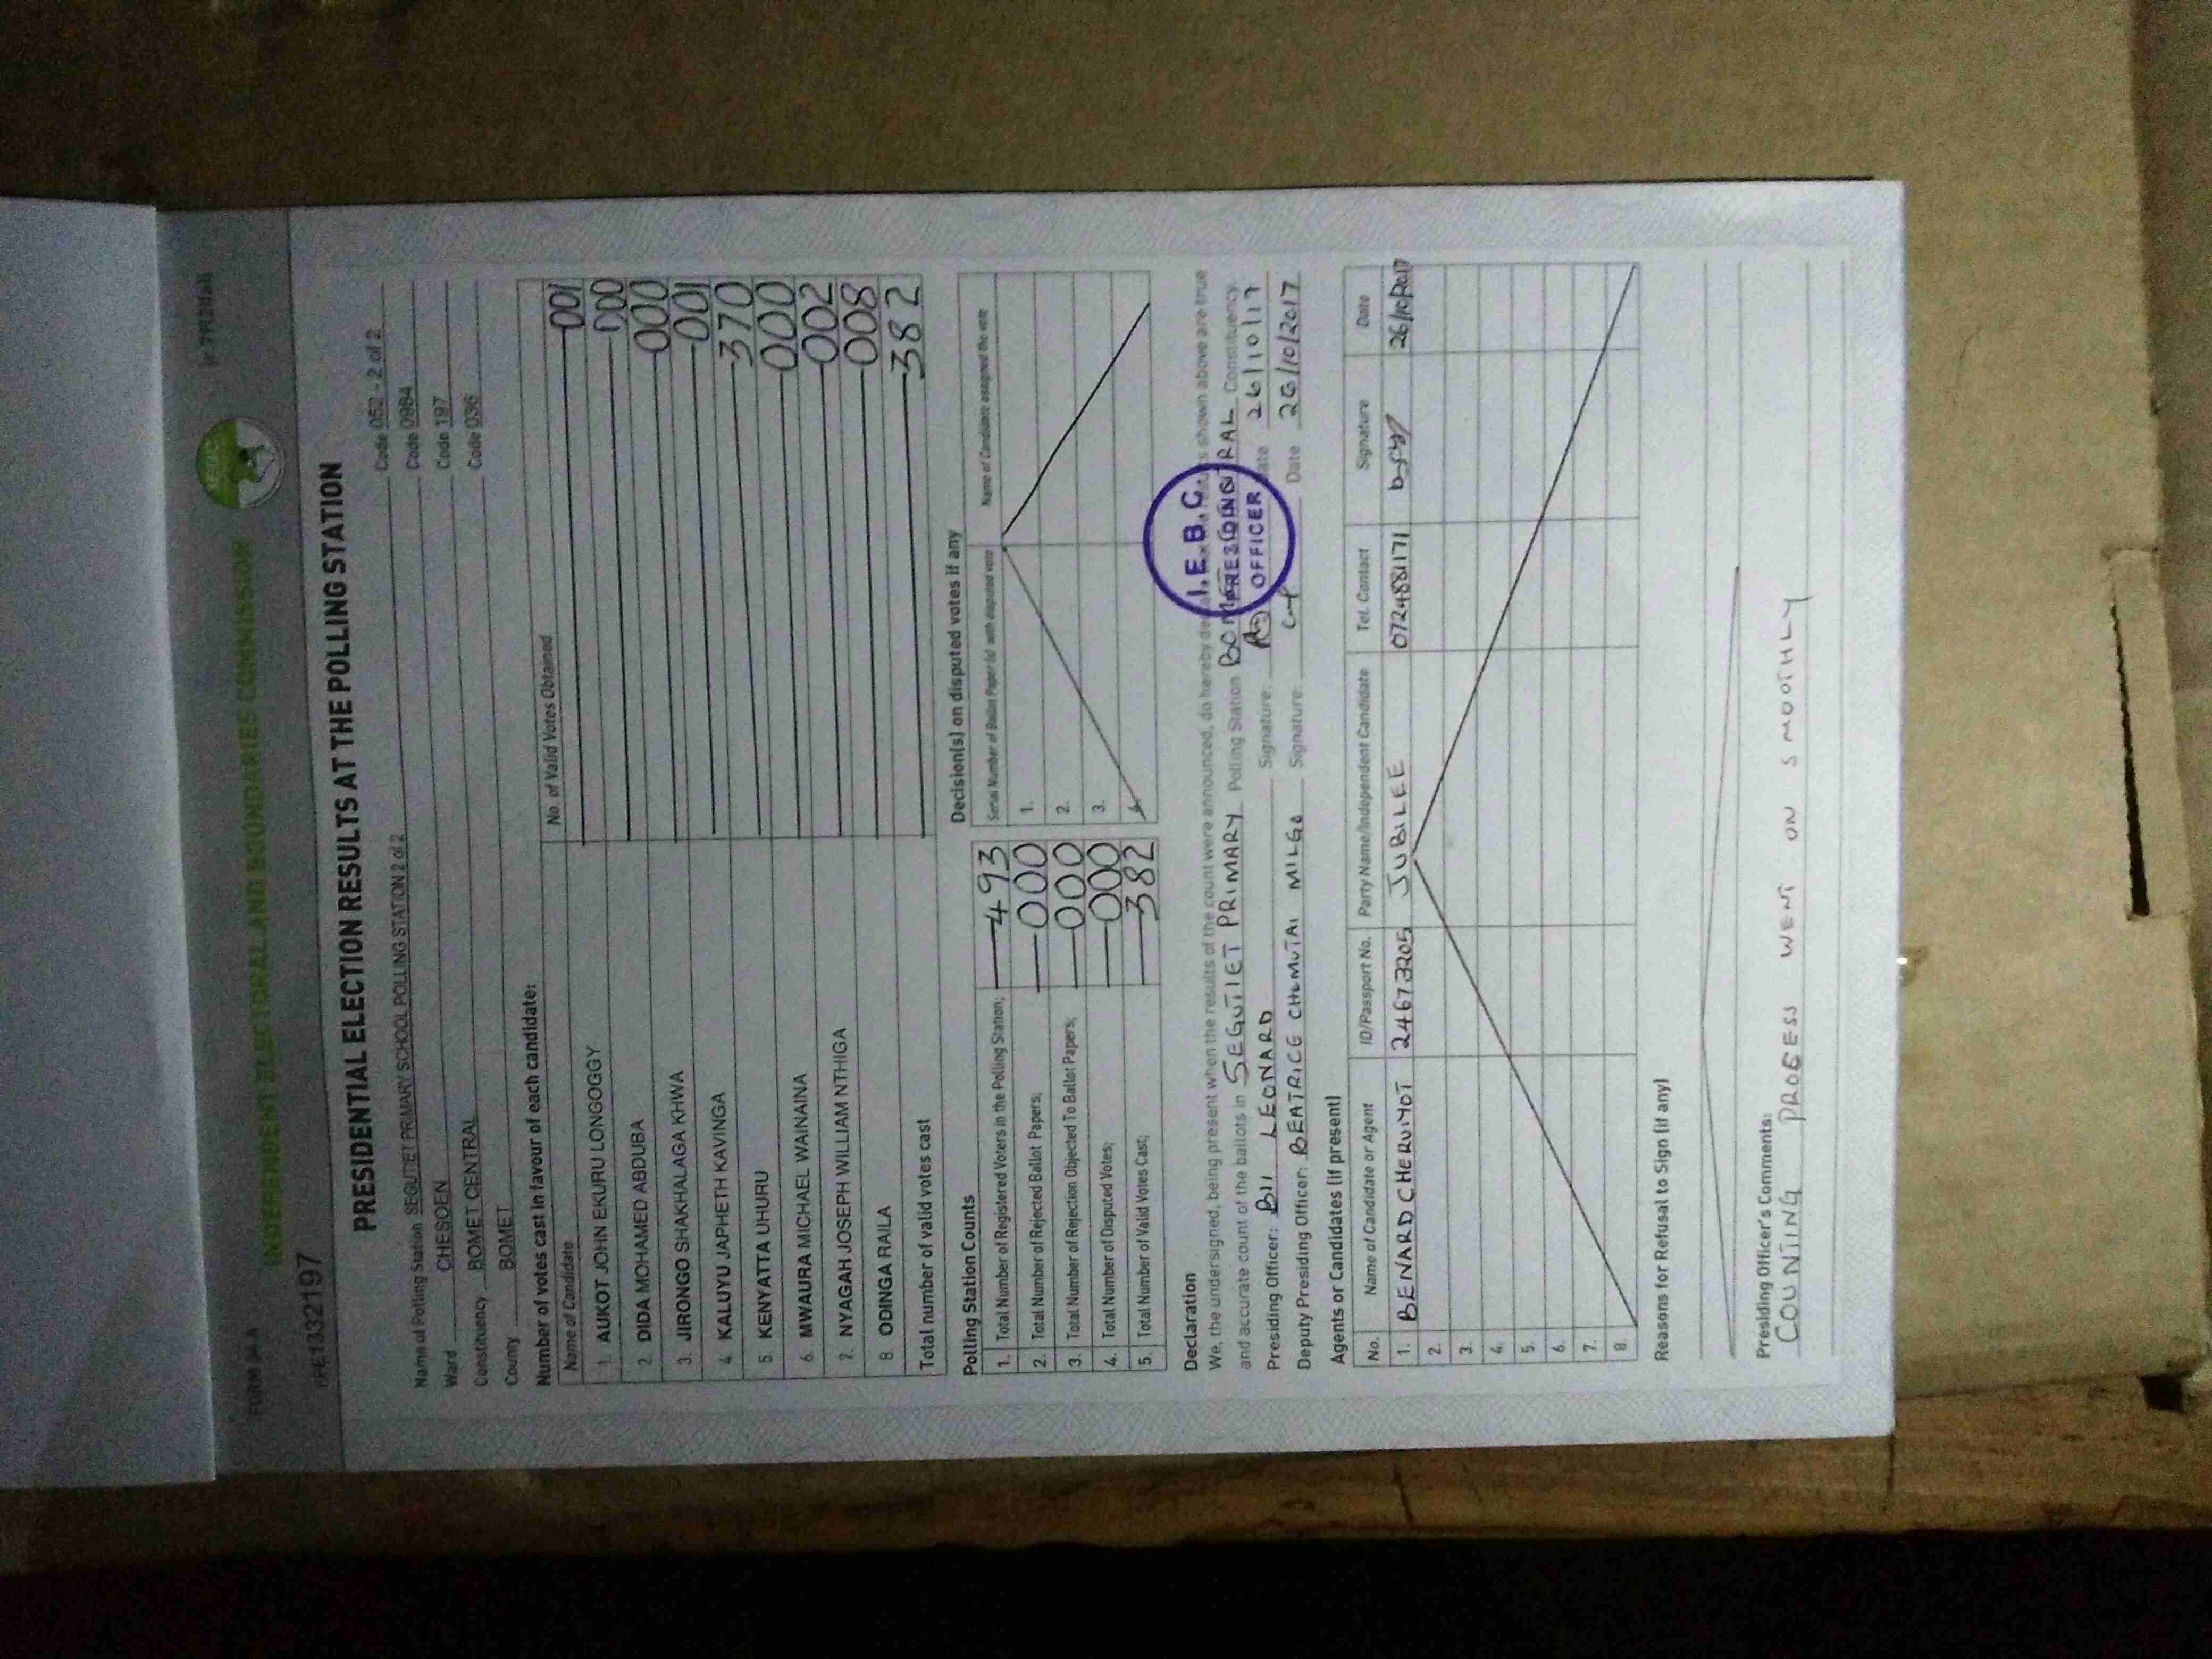 FORM 34A
INDEPENDENT ELECTORAL AND BOUNDARIES COMMISSION
PRE1332197
PRESIDENTIAL ELECTION RESULTS AT THE POLLING STATION
Name of Polling Station SEGUTIET PRIMARY SCHOOL POLLING STATION 2 of 2 Code 052 - 2 of 2
Ward CHESOEN Code 0984
Constituency BOMET CENTRAL Code 197
County BOMET Code 036
Number of votes cast in favour of each candidate:
Name of Candidate No. of Valid Votes Obtained
1. AUKOT JOHN EKURU LONGOGGY 001
2. DIDA MOHAMED ABDUBA 000
3. JIRONGO SHAKHALAGA KHWA 000
4. KALUYU JAPHETH KAVINGA 001
5. KENYATTA UHURU 370
6. MWAURA MICHAEL WAINAINA 000
7. NYAGAH JOSEPH WILLIAM NTHIGA 002
8. ODINGA RAILA 008
Total number of valid votes cast 382
Polling Station Counts
1. Total Number of Registered Voters in the Polling Station; 493
2. Total Number of Rejected Ballot Papers; 000
3. Total Number of Rejection Objected To Ballot Papers; 000
4. Total Number of Disputed Votes; 000
5. Total Number of Valid Votes Cast; 382
Decision(s) on disputed votes if any
Serial Number of Ballot Paper (s) with disputed vote Name of Candidate assigned the vote
1.
2.
3.
Declaration
We, the undersigned, being present when the results of the count were announced, do hereby shown above are true
and accurate count of the ballots in SEGUTIET PRIMARY Polling Station BOMET CENTRAL Constituency.
Presiding Officer: BII LEONARD Signature: Date 26/10/17
Deputy Presiding Officer: BEATRICE CHEMUTAI MILGO Signature: Date 26/10/2017
I.E.B.C.
PRESIDING
OFFICER
Agents or Candidates (if present)
No. Name of Candidate or Agent ID/Passport No. Party Name/Independent Candidate Tel. Contact Signature Date
1. BENARD CHERUIYOT 24673205 JUBILEE 0724881171 26/10/2017
2.
3.
4.
5.
6.
7.
8.
Reasons for Refusal to Sign (if any)
Presiding Officer's Comments:
COUNTING PROCESS WENT ON SMOOTHLY